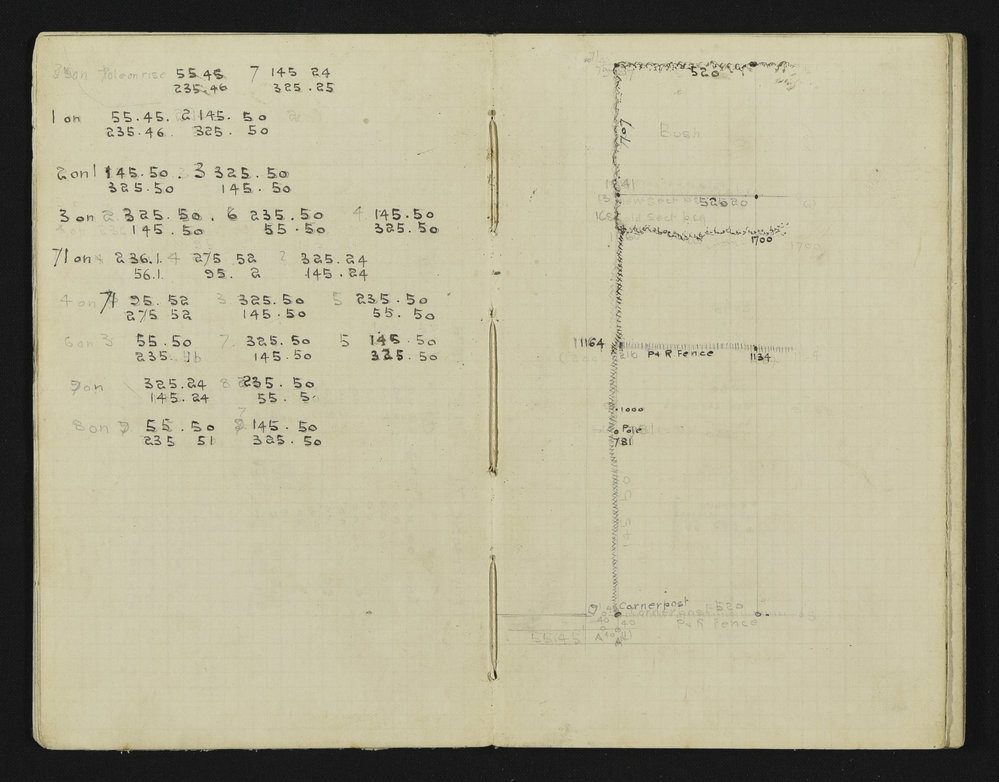 on Pole on rise 55.45 7 145 24
235.46 325.25
1 on 55.45. 2 145. 50
235.46 325. 50
2 on 1 145.50. 3 325.50
325.50 145.50
3 on 2 325.50. 6 235.50 4 145.50
145.50 55.50 325.50
71 on 236.1. 4 275 52 2 325.24
56.1. 95. 2 145.24
4 on 71 95. 52 3 325.50 5 235.50
275 52 145.50 55. 50
6 on 3 55.50 7 325.50 5 145.50
235. 46 145.50 325.50
7 on 325.24 8 235. 50
145.24 55. 50
8 on 7 55.50 9 145.50
235 51 325.50
520
Lot
Bush
52620
1700
1700
11164 216 P & R Fence 1134
1000
Pole
781
145 50
Cornerpost 520
P & R Fence
40 40
55.45 A